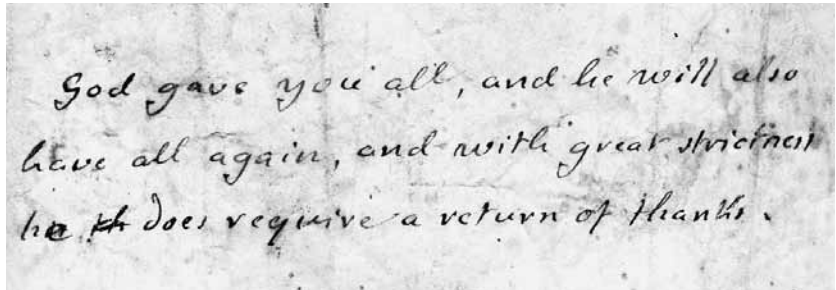 God gave you all, and he will also
have all again, and with great strictness
he does require a return of thanks.